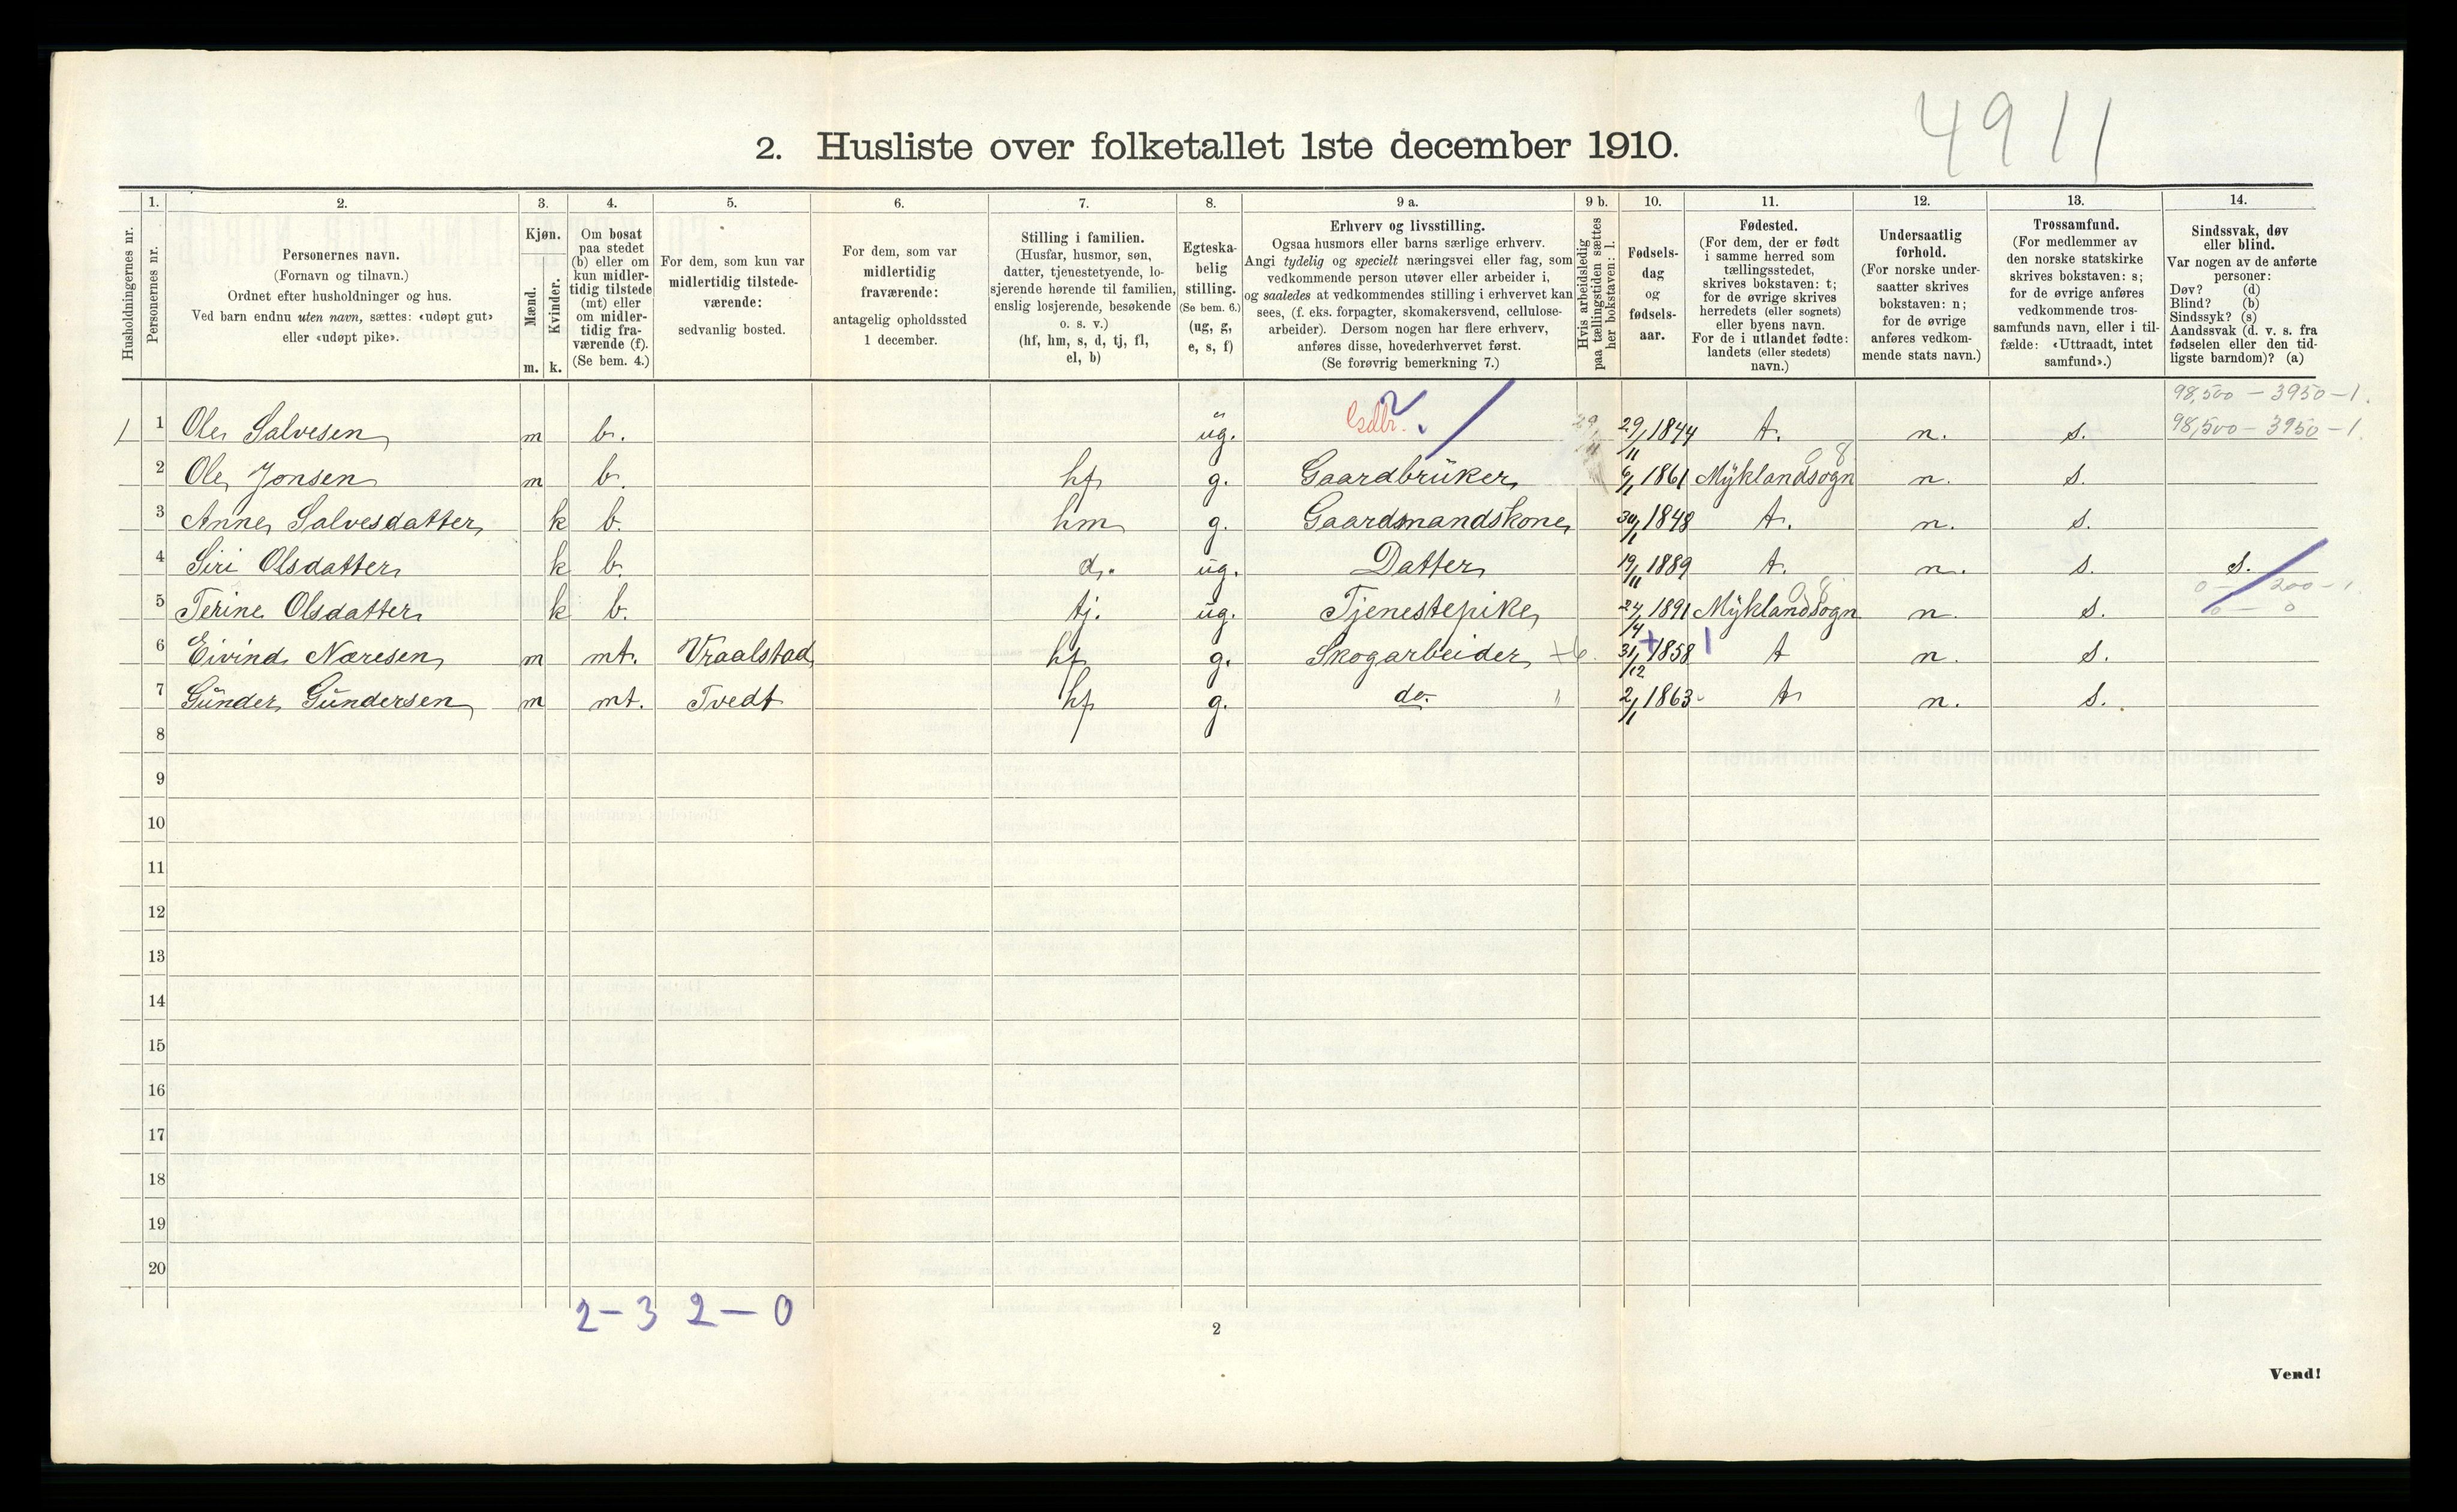 4911
2. Husliste over folketallet 1ste december 1910.
Husholdningernes nr.
1. Personernes nr.
2. Personernes navn.
(Fornavn og tilnavn.)
Ordnet efter husholdninger og hus.
Ved barn endnu uten navn, sættes: «udøpt gut»
eller «udøpt pike».
3. Kjøn.
Mænd. Kvinder.
m. k.
4. Om bosat
paa stedet
(b) eller om
kun midler-
tidig tilstede
(mt) eller
om midler-
tidig fra-
værende (f).
(Se bem. 4.)
5. For dem, som kun var
midlertidig tilstede-
værende:
sedvanlig bosted.
6. For dem, som var
midlertidig
fraværende:
antagelig opholdssted
1 december.
7. Stilling i familien.
(Husfar, husmor, søn,
datter, tjenestetyende, lo-
sjerende hørende til familien,
enslig losjerende, besøkende
o. s. v.)
(hf, hm, s, d, tj, fl,
el, b)
8. Egteska-
belig
stilling.
(Se bem. 6.)
(ug, g,
e, s, f)
9 a. Erhverv og livsstilling.
Ogsaa husmors eller barns særlige erhverv.
Angi tydelig og specielt næringsvei eller fag, som
vedkommende person utøver eller arbeider i,
og saaledes at vedkommendes stilling i erhvervet kan
sees, (f. eks. forpagter, skomakersvend, cellulose-
arbeider). Dersom nogen har flere erhverv,
anføres disse, hovederhvervet først.
(Se forøvrig bemerkning 7.)
9 b. Hvis arbeidsledig
paa tællingstiden sættes
her bokstaven: l.
10. Fødsels-
dag
og
fødsels-
aar.
11. Fødested.
(For dem, der er født
i samme herred som
tællingsstedet,
skrives bokstaven: t;
for de øvrige skrives
herredets (eller sognets)
eller byens navn.
For de i utlandet fødte:
landets (eller stedets)
navn.)
12. Undersaatlig
forhold.
(For norske under-
saatter skrives
bokstaven: n;
for de øvrige
anføres vedkom-
mende stats navn.)
13. Trossamfund.
(For medlemmer av
den norske statskirke
skrives bokstaven: s;
for de øvrige anføres
vedkommende tros-
samfunds navn, eller i til-
fælde: «Uttraadt, intet
samfund».)
14. Sindssvak, døv
eller blind.
Var nogen av de anførte
personer:
Døv? (d)
Blind? (b)
Sindssyk? (s)
Aandssvak (d. v. s. fra
fødselen eller den tid-
ligste barndom)? (a)
98,500 – 3950 – 1.
1 1 Ole Salvesen m b. ug. Gdbr. 29/11 1844 t. n. s. 98,500 – 3950 – 1.
2 Ole Jonsen m b. hf g. Gaardbrüker 6/1 1861 Myklandsogn n. s.
3 Anne Salvesdatter k b. hm g. Gaardmandskone 30/1 1848 t. n. s.
4 Siri Olsdatter k b. d. ug. Datter 19/11 1889 t. n. s. s.
0 – 200 – 1.
5 Terine Olsdatter k b. tj. ug. Tjenestepike 24/4 1891 Myklandsogn n. s. 0 – 0
6 Eivind Næresen m mt. Vraalstad hf g. Skogarbeider 31/12 1858 t n. s.
7 Günder Gündersen m mt. Tvedt hf g. do. 2/1 1863 t n. s.
8
9
10
11
12
13
14
15
16
17
18
19
20
2 – 3 2 – 0
2
Vend!